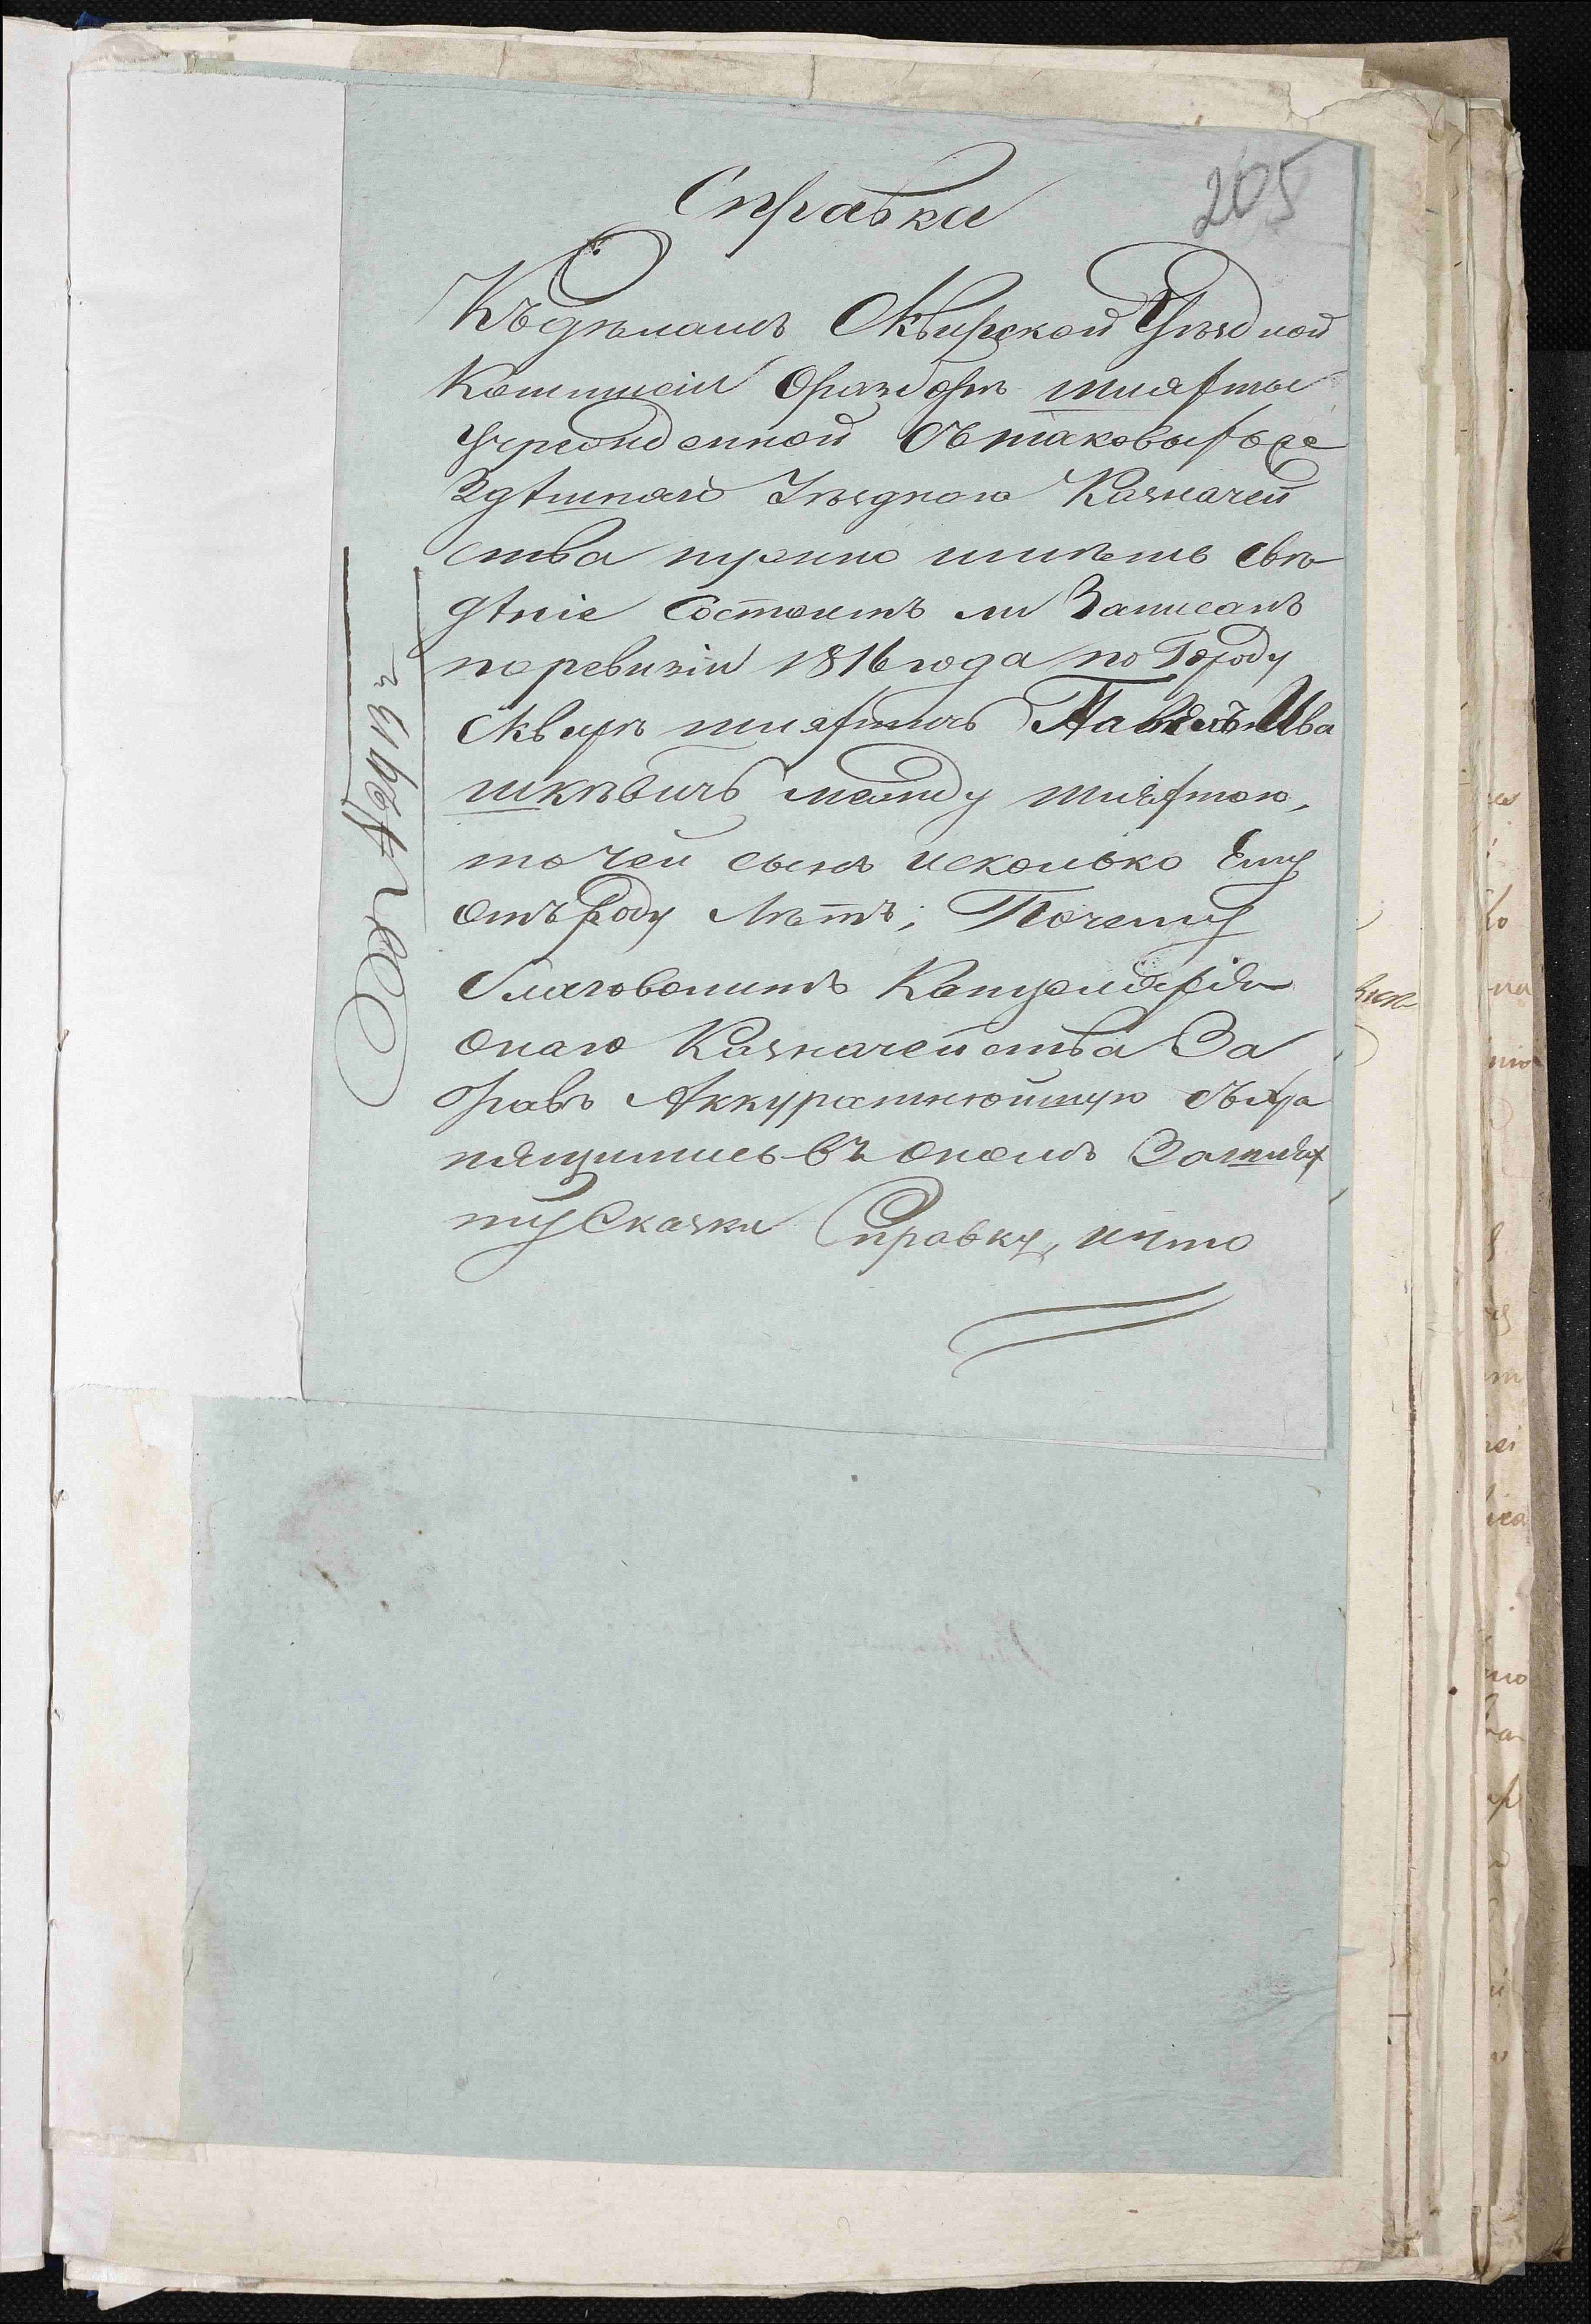 205
Справка
Къ дѣламъ Сквирской Уѣздной
Коммисіи о разборѣ шляхты
учрежденной съ таковыхъ же
Здѣшнаго Уѣзднаго Казначей
ства нужно имѣть свѣ
дѣніе Состоитъ ли Записанъ
по ревизіи 1816 года по Городу
Сквирѣ шляхтичъ Павелъ Ива
шкѣвичъ между шляхтою,
то чей сынъ и сколько Ему
отъ роду Лѣтъ; Почему
благоволитъ Канцелярія
онаго Казначейства За
бравъ Аккуратнюйшую съ хра
нящимись въ ономъ За шлях
ту Сказки Справку, и что